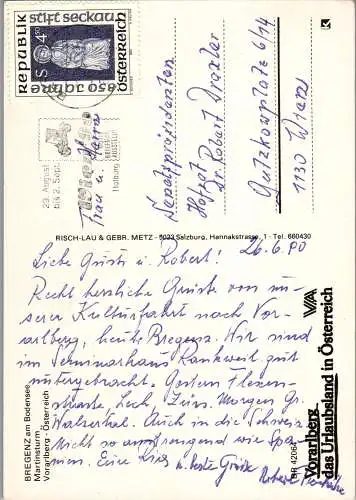 REPUBLIK
stift seckau
S 4.50
850 Jahre
österreich
29. August
bis 2. Sept.
Frau u. Herrn
Senatspräsidenten
Hofrat
Dr. Robert Draxler
Gutzkowplatz 6/14
1130 Wien
RISCH-LAU & GEBR. METZ - 5023 Salzburg, Hannakstrasse, 1 - Tel. 660430
26.6.90
Liebe Gusti u. Robert!
Recht herzliche Grüsse von un-
serer Kulturfahrt nach Vor-
arlberg, heute Bregenz. Wir sind
im Seminarhaus Rankweil gut
untergebracht. Gestern Flexen-
strasse, Lech, Zürs. Morgen Gr.
Walsertal. Auch in die Schweiz.
Nicht so anstrengend wie Spa-
nien. Eine liebe u. beste Grüsse
BREGENZ am Bodensee
Martinsturm
Vorarlberg - Österreich
BR 4206
Vorarlberg
das Urlaubsland in Österreich